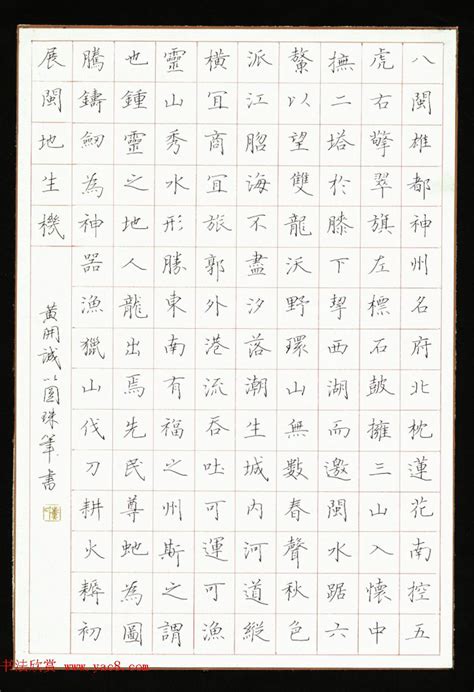 八閩雄都神州名府北枕蓮花南控五
虎右擎翠旗左標石鼓擁三山入懷中
撫二塔於膝下挈西湖而邀閩水踞六
鰲以望雙龍沃野環山無數春聲秋色
派江䏮海不盡汐落潮生城內河道縱
橫宜商宜旅郭外港流吞吐可運可漁
靈山秀水形勝東南有福之州斯之謂
也鍾靈之地人龍出焉先民尊虵為圖
騰鑄劒為神器漁獵山伐刀耕火耨初
展閩地生機
黄開誠以圓珠筆書
书法欣赏 www.yac8.com